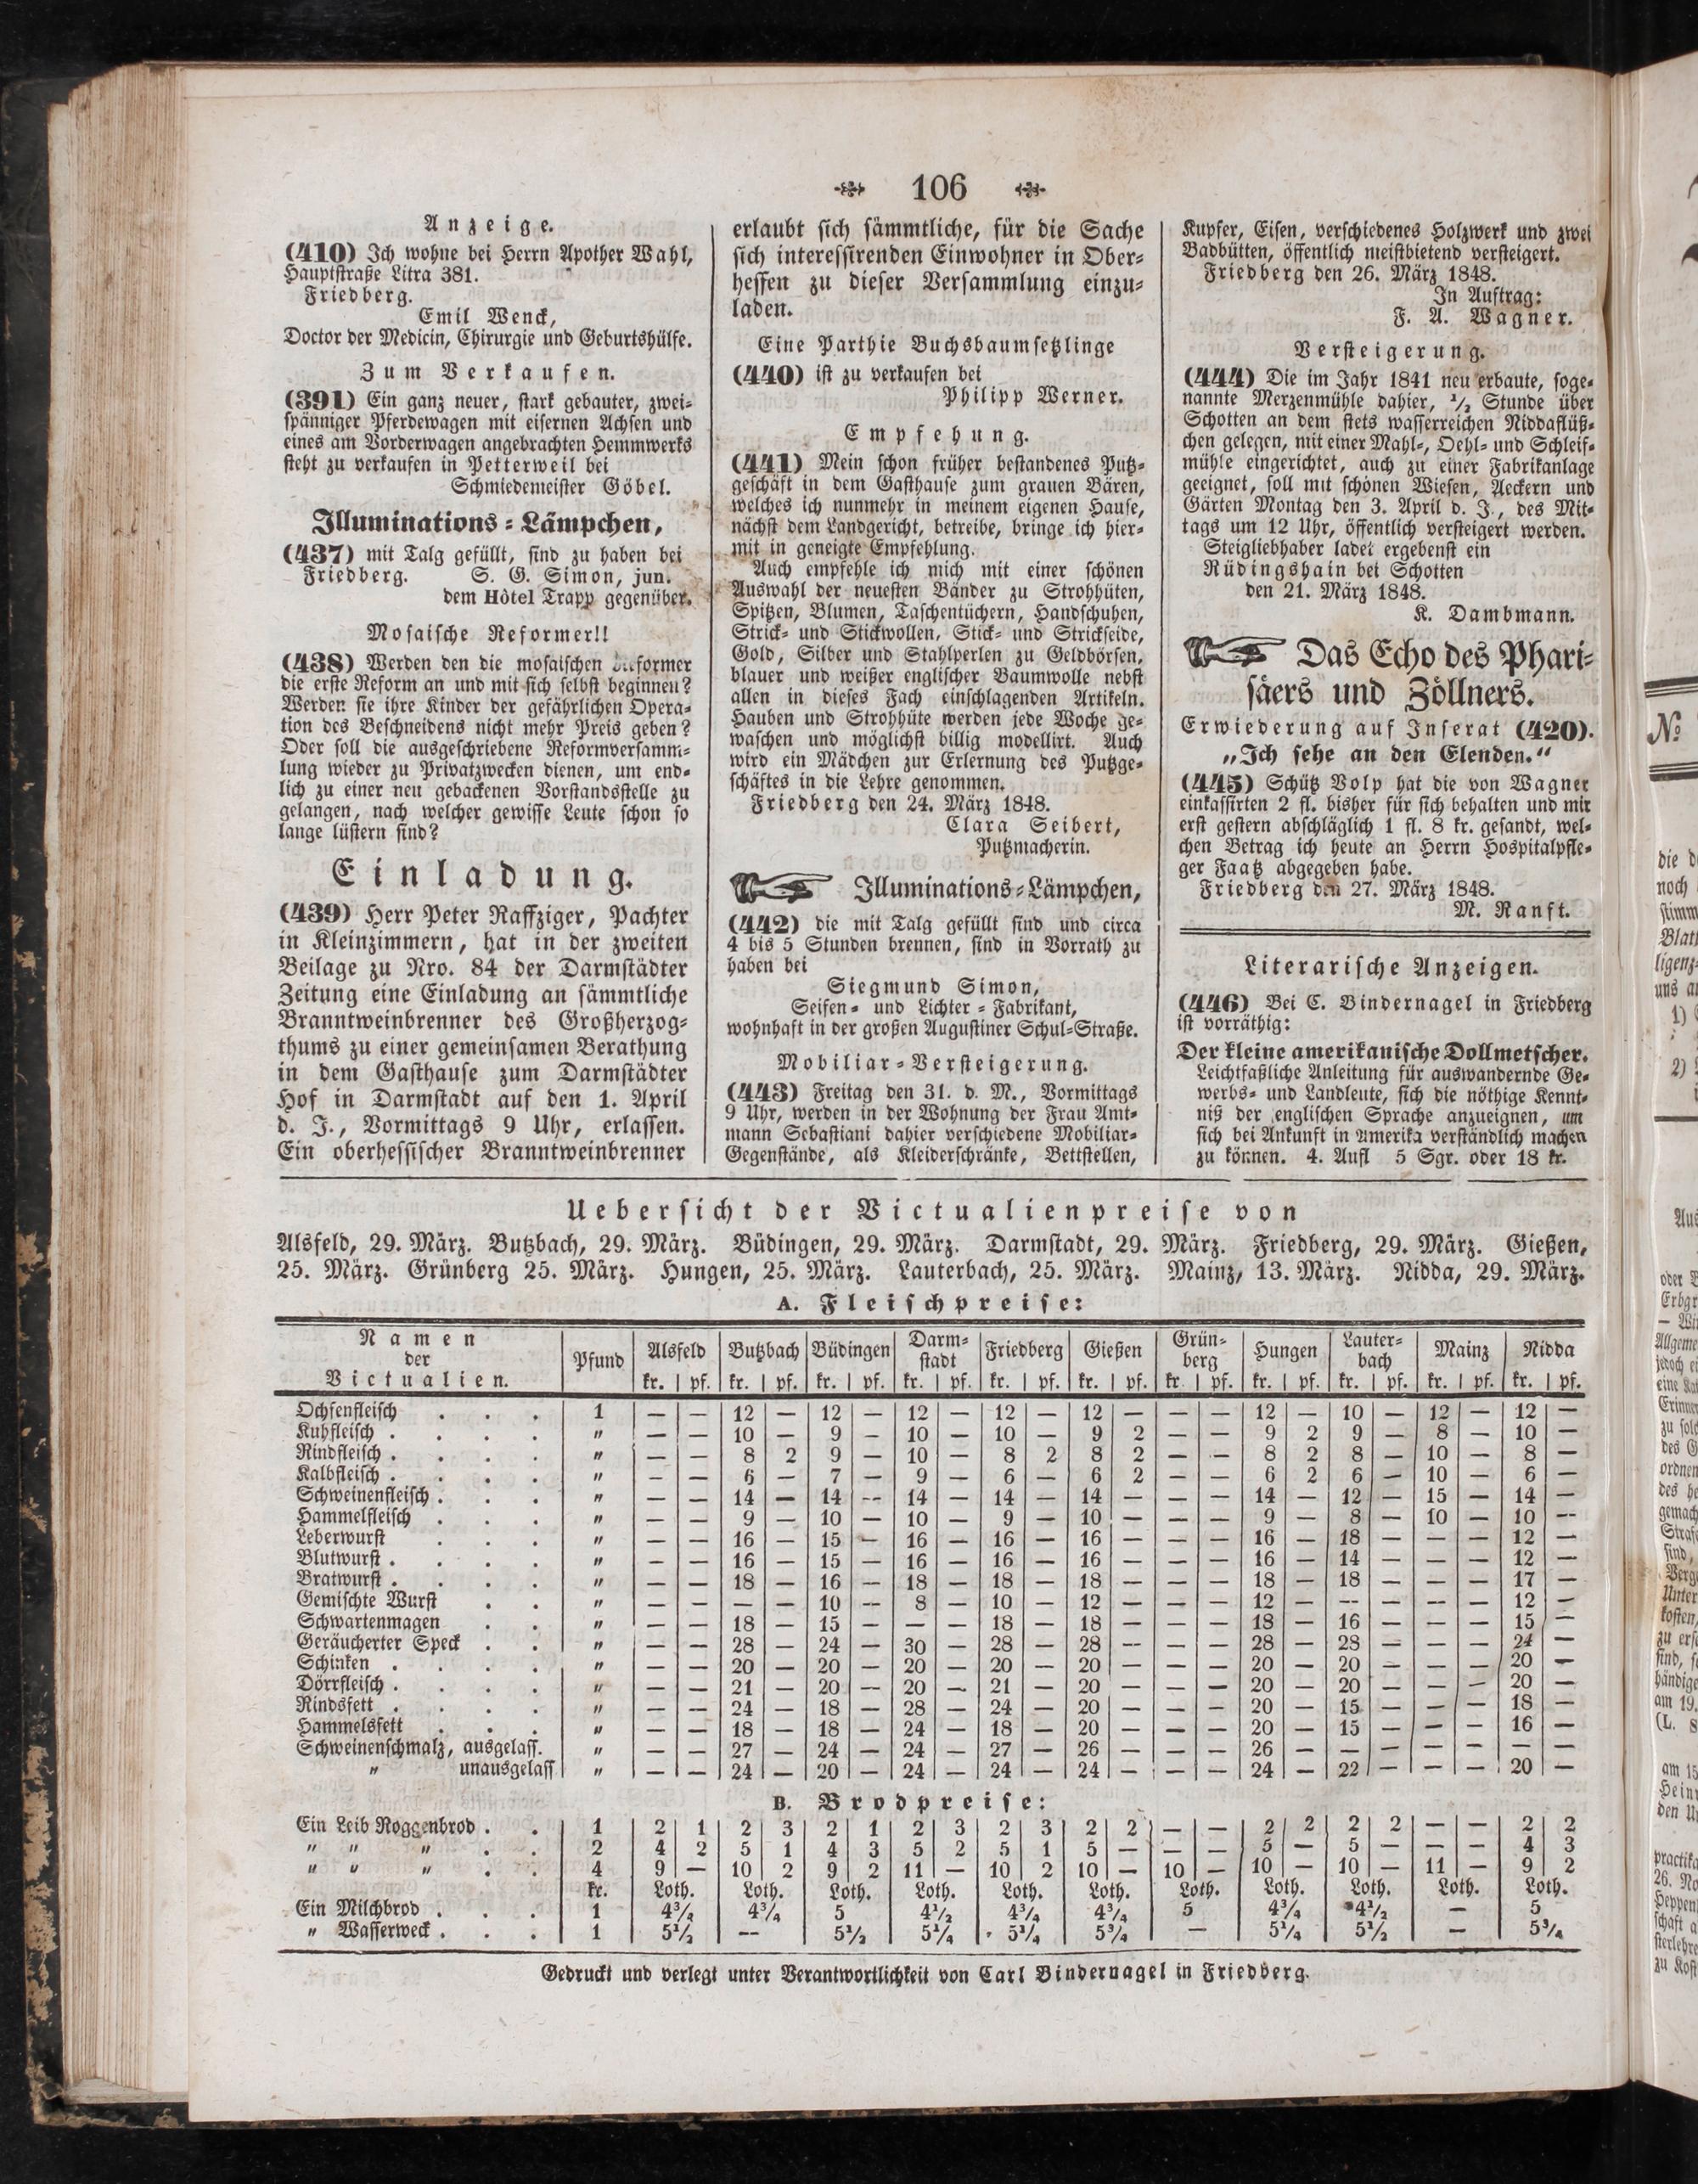 106
Anzeige.
(410) Ich wohne bei Herrn Apother Wahl,
Hauptstraße Litra 381.
Friedberg.
Emil Wenck,
Doctor der Medicin, Chirurgie und Geburtshülfe.
Zum Verkaufen.
(391) Ein ganz neuer, stark gebauter, zwei-
spänniger Pferdewagen mit eisernen Achsen und
eines am Vorderwagen angebrachten Hemmwerks
steht zu verkaufen in Petterweil bei
Schmiedemeister Göbel.
Illuminations-Lämpchen,
(437) mit Talg gefüllt, sind zu haben bei
Friedberg. S. G. Simon, jun.
dem Hôtel Trapp gegenüber.
Mosaische Reformer!!
(438) Werden den die mosaischen
die erste Reform an und mit sich selbst beginnen?
Werden sie ihre Kinder der gefährlichen Opera-
tion des Beschneidens nicht mehr Preis geben?
Oder soll die ausgeschriebene Reformversamm-
lung wieder zu Privatzwecken dienen, um end-
lich zu einer neu gebackenen Vorstandsstelle zu
gelangen, nach welcher gewisse Leute schon so
lange lüstern sind?
Einladung.
(439) Herr Peter Raffziger, Pachter
in Kleinzimmern, hat in der zweiten
Beilage zu Nro. 84 der Darmstädter
Zeitung eine Einladung an sämmtliche
Branntweinbrenner des Großherzog-
thums zu einer gemeinsamen Berathung
in dem Gasthause zum Darmstädter
Hof in Darmstadt auf den 1. April
d. J., Vormittags 9 Uhr, erlassen.
Ein oberhessischer Branntweinbrenner
erlaubt sich sämmtliche, für die Sache
sich interessirenden Einwohner in Ober-
hessen zu dieser Versammlung einzu-
laden.
Eine Parthie Buchsbaumsetzlinge
(440) ist zu verkaufen bei
Philipp Werner.
Empfehung.
(441) Mein schon früher bestandenes Putz-
geschäft in dem Gasthause zum grauen Bären,
welches ich nunmehr in meinem eigenen Hause,
nächst dem Landgericht, betreibe, bringe ich hier-
mit in geneigte Empfehlung.
Auch empfehle ich mich mit einer schönen
Auswahl der neuesten Bänder zu Strohhüten,
Spitzen, Blumen, Taschentüchern, Handschuhen,
Strick- und Stickwollen, Stick- und Strickseide,
Gold, Silber und Stahlperlen zu Geldbörsen,
blauer und weißer englischer Baumwolle nebst
allen in dieses Fach einschlagenden Artikeln.
Hauben und Strohhüte werden jede Woche ge-
waschen und möglichst billig modellirt. Auch
wird ein Mädchen zur Erlernung des Putzge-
schäftes in die Lehre genommen.
Friedberg den 24. März 1848.
Clara Seibert,
Putzmacherin.
Illuminations-Lämpchen,
(442) die mit Talg gefüllt sind und circa
4 bis 5 Stunden brennen, sind in Vorrath zu
haben bei
Siegmund Simon,
Seifen- und Lichter-Fabrikant,
wohnhaft in der großen Augustiner Schul-Straße.
Mobiliar-Versteigerung.
(443) Freitag den 31. d. M., Vormittags
9 Uhr, werden in der Wohnung der Frau Amt-
mann Sebastiani dahier verschiedene Mobiliar-
Gegenstände, als Kleiderschränke, Bettstellen,
Kupfer, Eisen, verschiedenes Holzwerk und zwei
Badbütten, öffentlich meistbietend versteigert.
Friedberg den 26. März 1848.
In Auftrag:
F. A. Wagner.
Versteigerung.
(444) Die im Jahr 1841 neu erbaute, soge-
nannte Merzenmühle dahier, 1/2 Stunde über
Schotten an dem stets wasserreichen Niddaflüß-
chen gelegen, mit einer Mahl-, Oehl- und Schleif-
mühle eingerichtet, auch zu einer Fabrikanlage
geeignet, soll mit schönen Wiesen, Aeckern und
Gärten Montag den 3. April d. J., des Mit-
tags um 12 Uhr, öffentlich versteigert werden.
Steigliebhaber ladet ergebenst ein
Rüdingshain bei Schotten
den 21. März 1848.
K. Dambmann.
Das Echo des Phari-
säers und Zöllners.
Erwiederung auf Inserat (420).
„Ich sehe an den Elenden.“
(445) Schütz Volp hat die von Wagner
einkassirten 2 fl. bisher für sich behalten und mir
erst gestern abschläglich 1 fl. 8 kr. gesandt, wel-
chen Betrag ich heute an Herrn Hospitalpfle-
ger Faatz abgegeben habe.
Friedberg den 27. März 1848.
M. Ranft.
Literarische Anzeigen.
(446) Bei C. Bindernagel in Friedberg
ist vorräthig:
Der kleine amerikanische Dollmetscher.
Leichtfaßliche Anleitung für auswandernde Ge-
werbs- und Landleute, sich die nöthige Kennt-
niß der englischen Sprache anzueignen, um
sich bei Ankunft in Amerika verständlich machen
zu können. 4. Aufl 5 Sgr. oder 18 kr.
Uebersicht der Victualienpreise von
Alsfeld, 29. März. Butzbach, 29. März. Büdingen, 29. März. Darmstadt, 29. März. Friedberg, 29. März. Gießen,
25. März. Grünberg 25. März. Hungen, 25. März. Lauterbach, 25. März. Mainz, 13. März. Nidda, 29. März.
A. Fleischpreise:
Namen der Victualien. | Pfund | Alsfeld | Butzbach | Büdingen | Darm-stadt | Friedberg | Gießen | Grün-berg | Hungen | Lauter-bach | Mainz | Nidda
kr. | pf. kr. | pf. kr. | pf. kr. | pf. kr. | pf. kr. | pf. kr. | pf. kr. | pf. kr. | pf. kr. | pf. kr. | pf.
Ochsenfleisch . . . 1 — — 12 — 12 — 12 — 12 — 12 — — — 12 — 10 — 12 — 12 —
Kuhfleisch . . . . " — — 10 — 9 — 10 — 10 — 9 2 — — 9 2 9 — 8 — 10 —
Rindfleisch . . . . " — — 8 2 9 — 10 — 8 2 8 2 — — 8 2 8 — 10 — 8 —
Kalbfleisch . . . . " — — 6 — 7 — 9 — 6 — 6 2 — — 6 2 6 — 10 — 6 —
Schweinenfleisch . . . " — — 14 — 14 — 14 — 14 — 14 — — — 14 — 12 — 15 — 14 —
Hammelfleisch . . . " — — 9 — 10 — 10 — 9 — 10 — — — 9 — 8 — 10 — 10 —
Leberwurst . . . " — — 16 — 15 — 16 — 16 — 16 — — — 16 — 18 — — — 12 —
Blutwurst . . . . " — — 16 — 15 — 16 — 16 — 16 — — — 16 — 14 — — — 12 —
Bratwurst . . . . " — — 18 — 16 — 18 — 18 — 18 — — — 18 — 18 — — — 17 —
Gemischte Wurst . . " — — — — 10 — 8 — 10 — 12 — — — 12 — — — — — 12 —
Schwartenmagen . . " — — 18 — 15 — — — 18 — 18 — — — 18 — 16 — — — 15 —
Geräucherter Speck . . " — — 28 — 24 — 30 — 28 — 28 — — — 28 — 28 — — — 24 —
Schinken . . . . " — — 20 — 20 — 20 — 20 — 20 — — — 20 — 20 — — — 20 —
Dörrfleisch . . . . " — — 21 — 20 — 20 — 21 — 20 — — — 20 — 20 — — — 20 —
Rindsfett . . . . " — — 24 — 18 — 28 — 24 — 20 — — — 20 — 15 — — — 18 —
Hammelsfett . . . " — — 18 — 18 — 24 — 18 — 20 — — — 20 — 15 — — — 16 —
Schweinenschmalz, ausgelass. " — — 27 — 24 — 24 — 27 — 26 — — — 26 — — — — — — —
" unausgelass " — — 24 — 20 — 24 — 24 — 24 — — — 24 — 22 — — — 20 —
B. Brodpreise:
Ein Leib Roggenbrod . . 1 2 1 2 3 2 1 2 3 2 3 2 2 — — 2 2 2 2 — — 2 2
" " " . . 2 4 2 5 1 4 3 5 2 5 1 5 — — — 5 — 5 — — — 4 3
" " " . . 4 9 — 10 2 9 2 11 — 10 2 10 — 10 — 10 — 10 — 11 — 9 2
kr. Loth. Loth. Loth. Loth. Loth. Loth. Loth. Loth. Loth. Loth. Loth.
Ein Milchbrod . . . 1 4 3/4 4 3/4 5 4 1/2 4 3/4 4 3/4 5 4 3/4 4 1/2 — 5
" Wasserweck . . . 1 5 1/2 — 5 1/2 5 1/4 5 1/4 5 3/4 — 5 1/4 5 1/2 — 5 3/4
Gedruckt und verlegt unter Verantwortlichkeit von Carl Bindernagel in Friedberg.